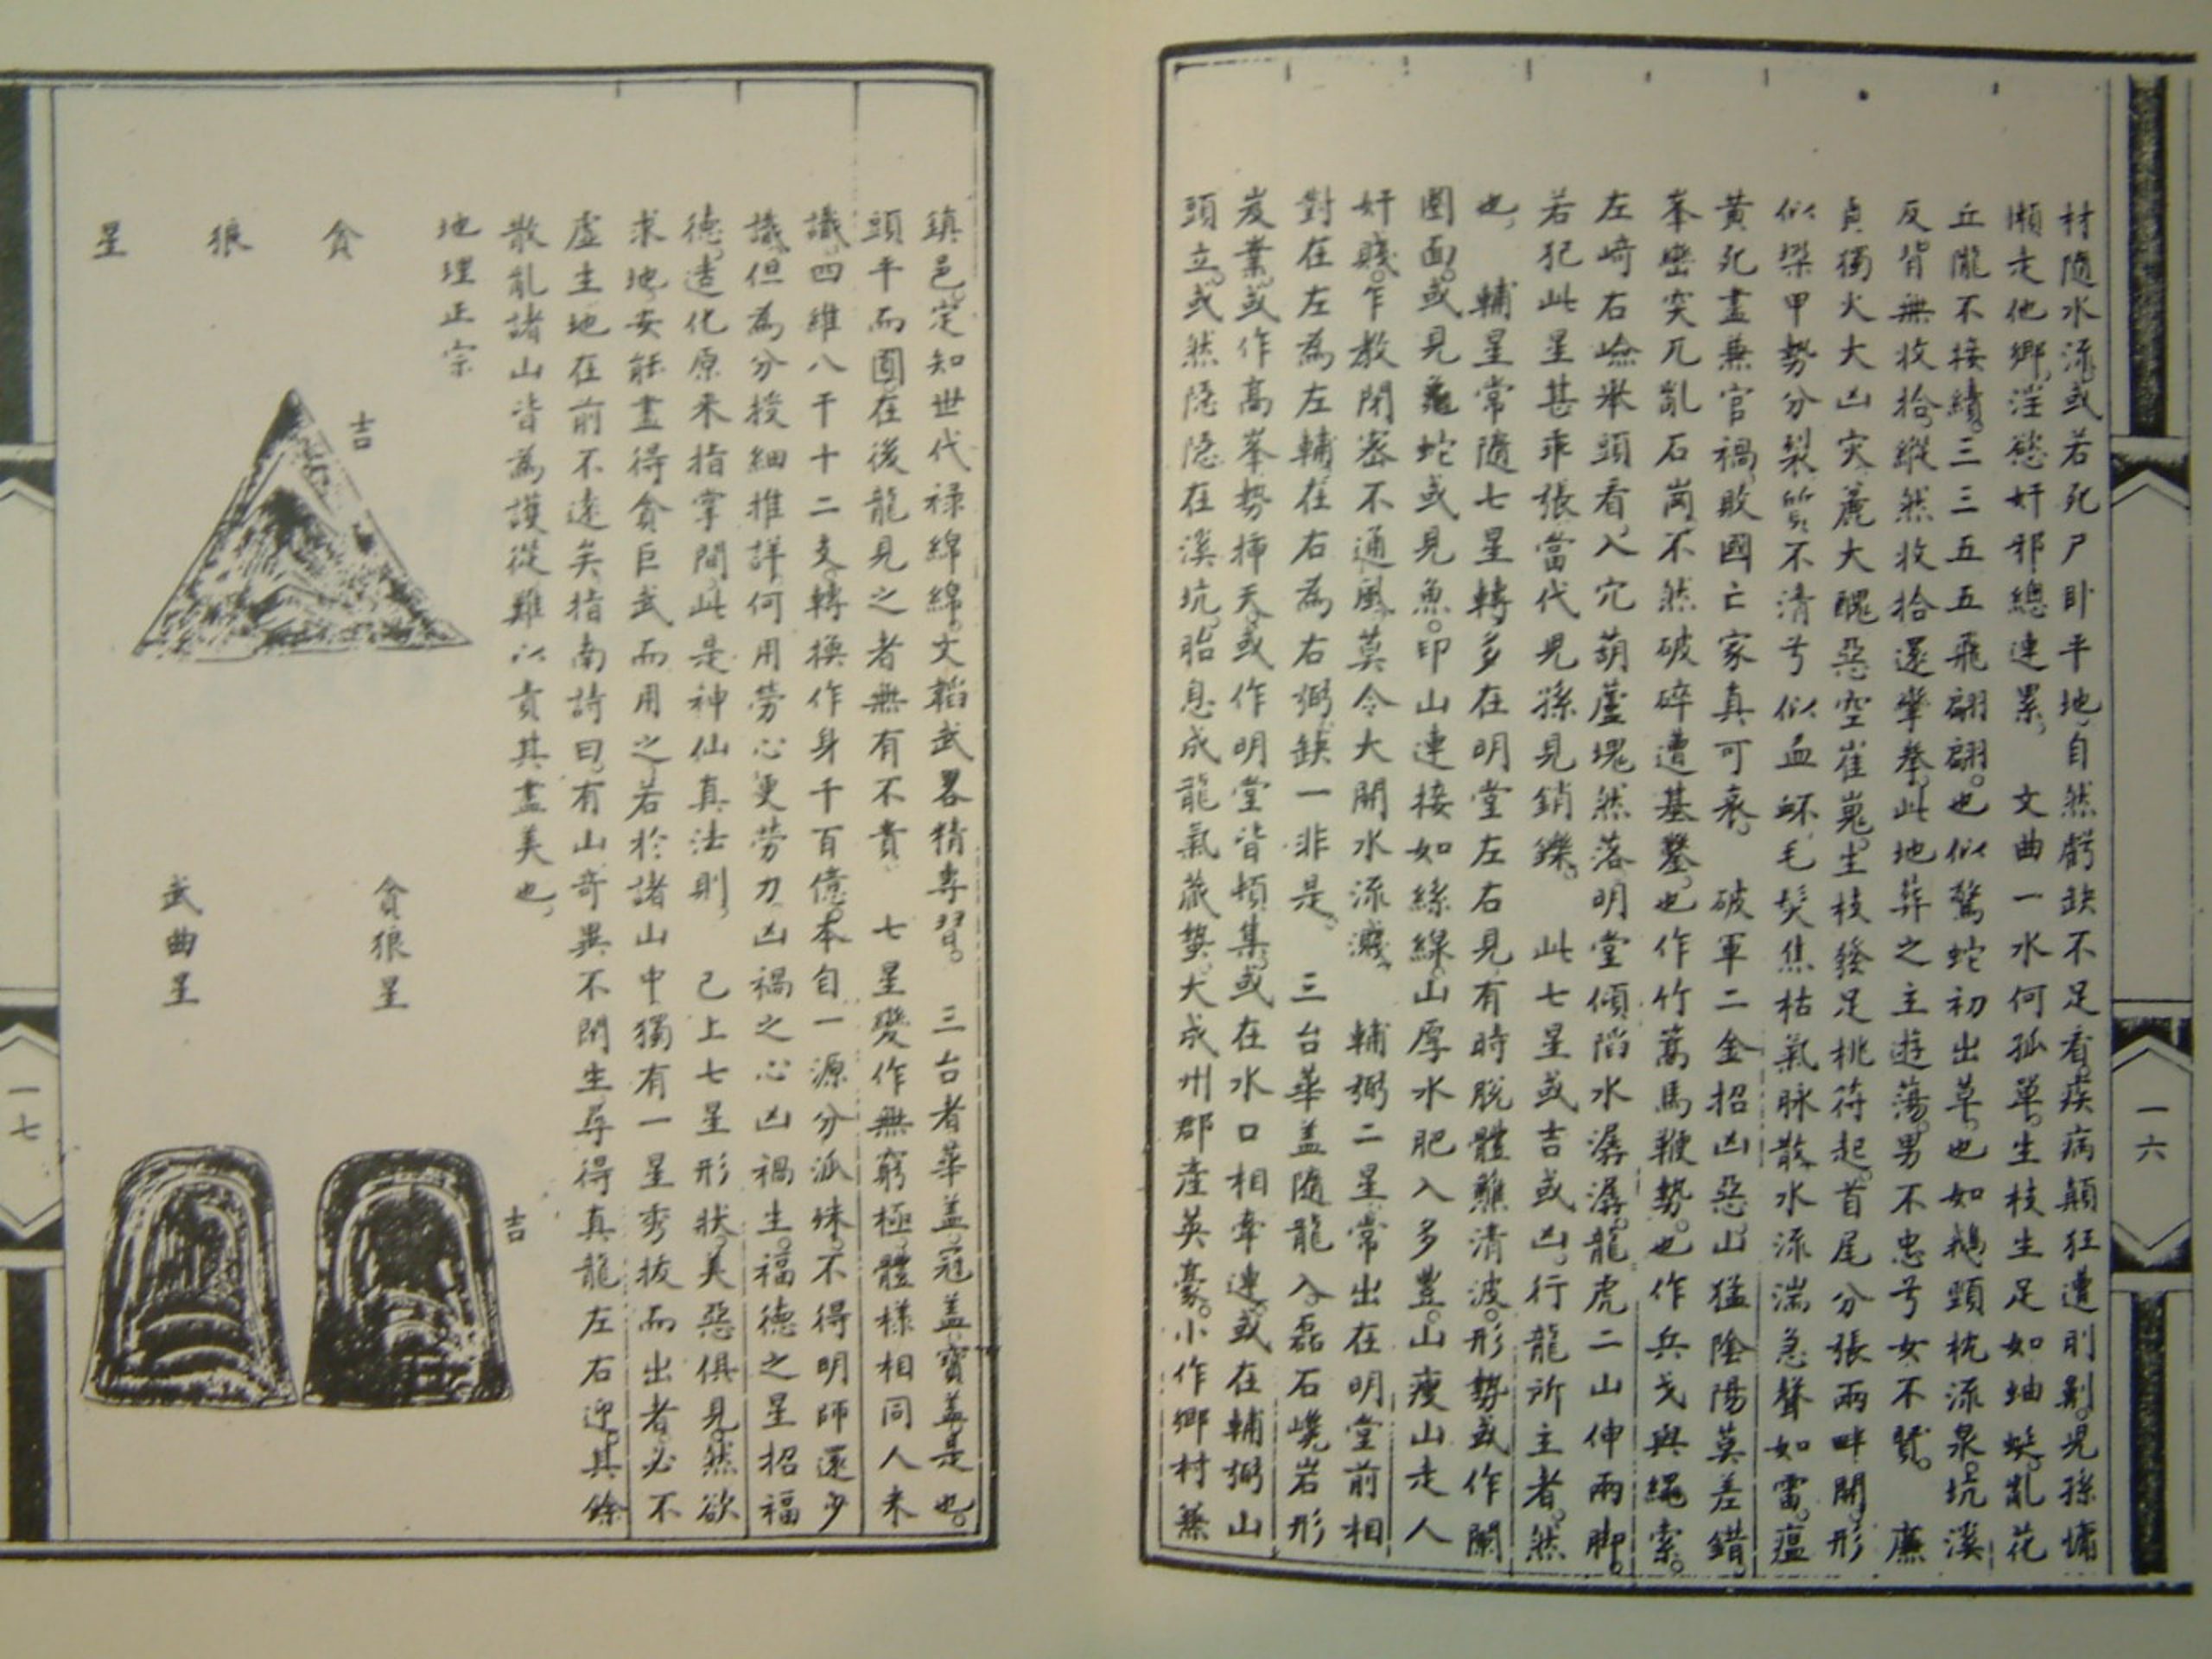 材隨水流或若死尸卧平地自然虧缺不足看疾病顛狂遭刖劓兒孫慵
懶走他鄉淫慾奸邪總連累 文曲一水何孤單生枝生足如蚰蜒亂花
丘隴不接續三三五五飛翩翩也似驚蛇初出草也如鵝頸枕流泉坑溪
反背無收拾縱然收拾還攣拳此地葬之主遊蕩男不忠兮女不賢 廉
貞獨火大凶灾麄大醜惡空崔嵬生枝發足桃符起首尾分張兩畔開形
似梁甲勢分裂質不清兮似血衃毛髮焦枯氣脉散水流湍急聲如雷瘟
黄死盡兼官禍敗國亡家真可哀 破軍二金招凶惡山猛陰陽莫差錯
峯巒突兀亂石崗不然破碎遭基鑿也作竹篙馬鞭勢也作兵戈與繩索
左崎右嶮米頭看入穴葫蘆塊然落明堂傾陷水潺潺龍虎二山伸兩脚
若犯此星甚乖張當代兒孫見銷鑠 此七星或吉或凶行龍所主者然
也 輔星常隨七星轉多在明堂左右見有時脱體蘸清波形勢或作闌
圈面或見龜蛇或見魚印山連接如絲線山厚水肥入多豊山瘦山走人
奸賤乍教閉密不通風莫令大開水流濺 輔弼二星常出在明堂前相
對在左為左輔在右為右弼缺一非是 三台華盖隨龍入磊石巉岩形
岌業或作高峯勢插天或作明堂皆頓集或在水口相牽連或在輔弼山
頭立或然隱隱在溪坑胎息成龍氣藏蟄大成州郡產英豪小作鄉村兼
一六
鎮邑定知世代祿綿綿文韜武畧精專習 三台者華盖冠盖寳盖是也
頭平而圓在後龍見之者無有不貴 七星變作無窮極體樣相同人未
識四維八干十二支轉換作身千百億本自一源分派殊不得明師還少
識但為分授細推詳何用勞心更勞力凶禍之心凶禍生福德之星招福
德造化原来指掌間此是神仙真法則 已上七星形狀美惡俱見然欲
求地安能盡得貪巨武而用之若於諸山中獨有一星秀拔而出者必不
虛主地在前不遠矣指南詩曰有山奇異不閒生尋得真龍左右迎其餘
散亂諸山皆為護從難以責其盡美也
地理正宗
貪狼星
吉
貪狼星
吉
武曲星
一七